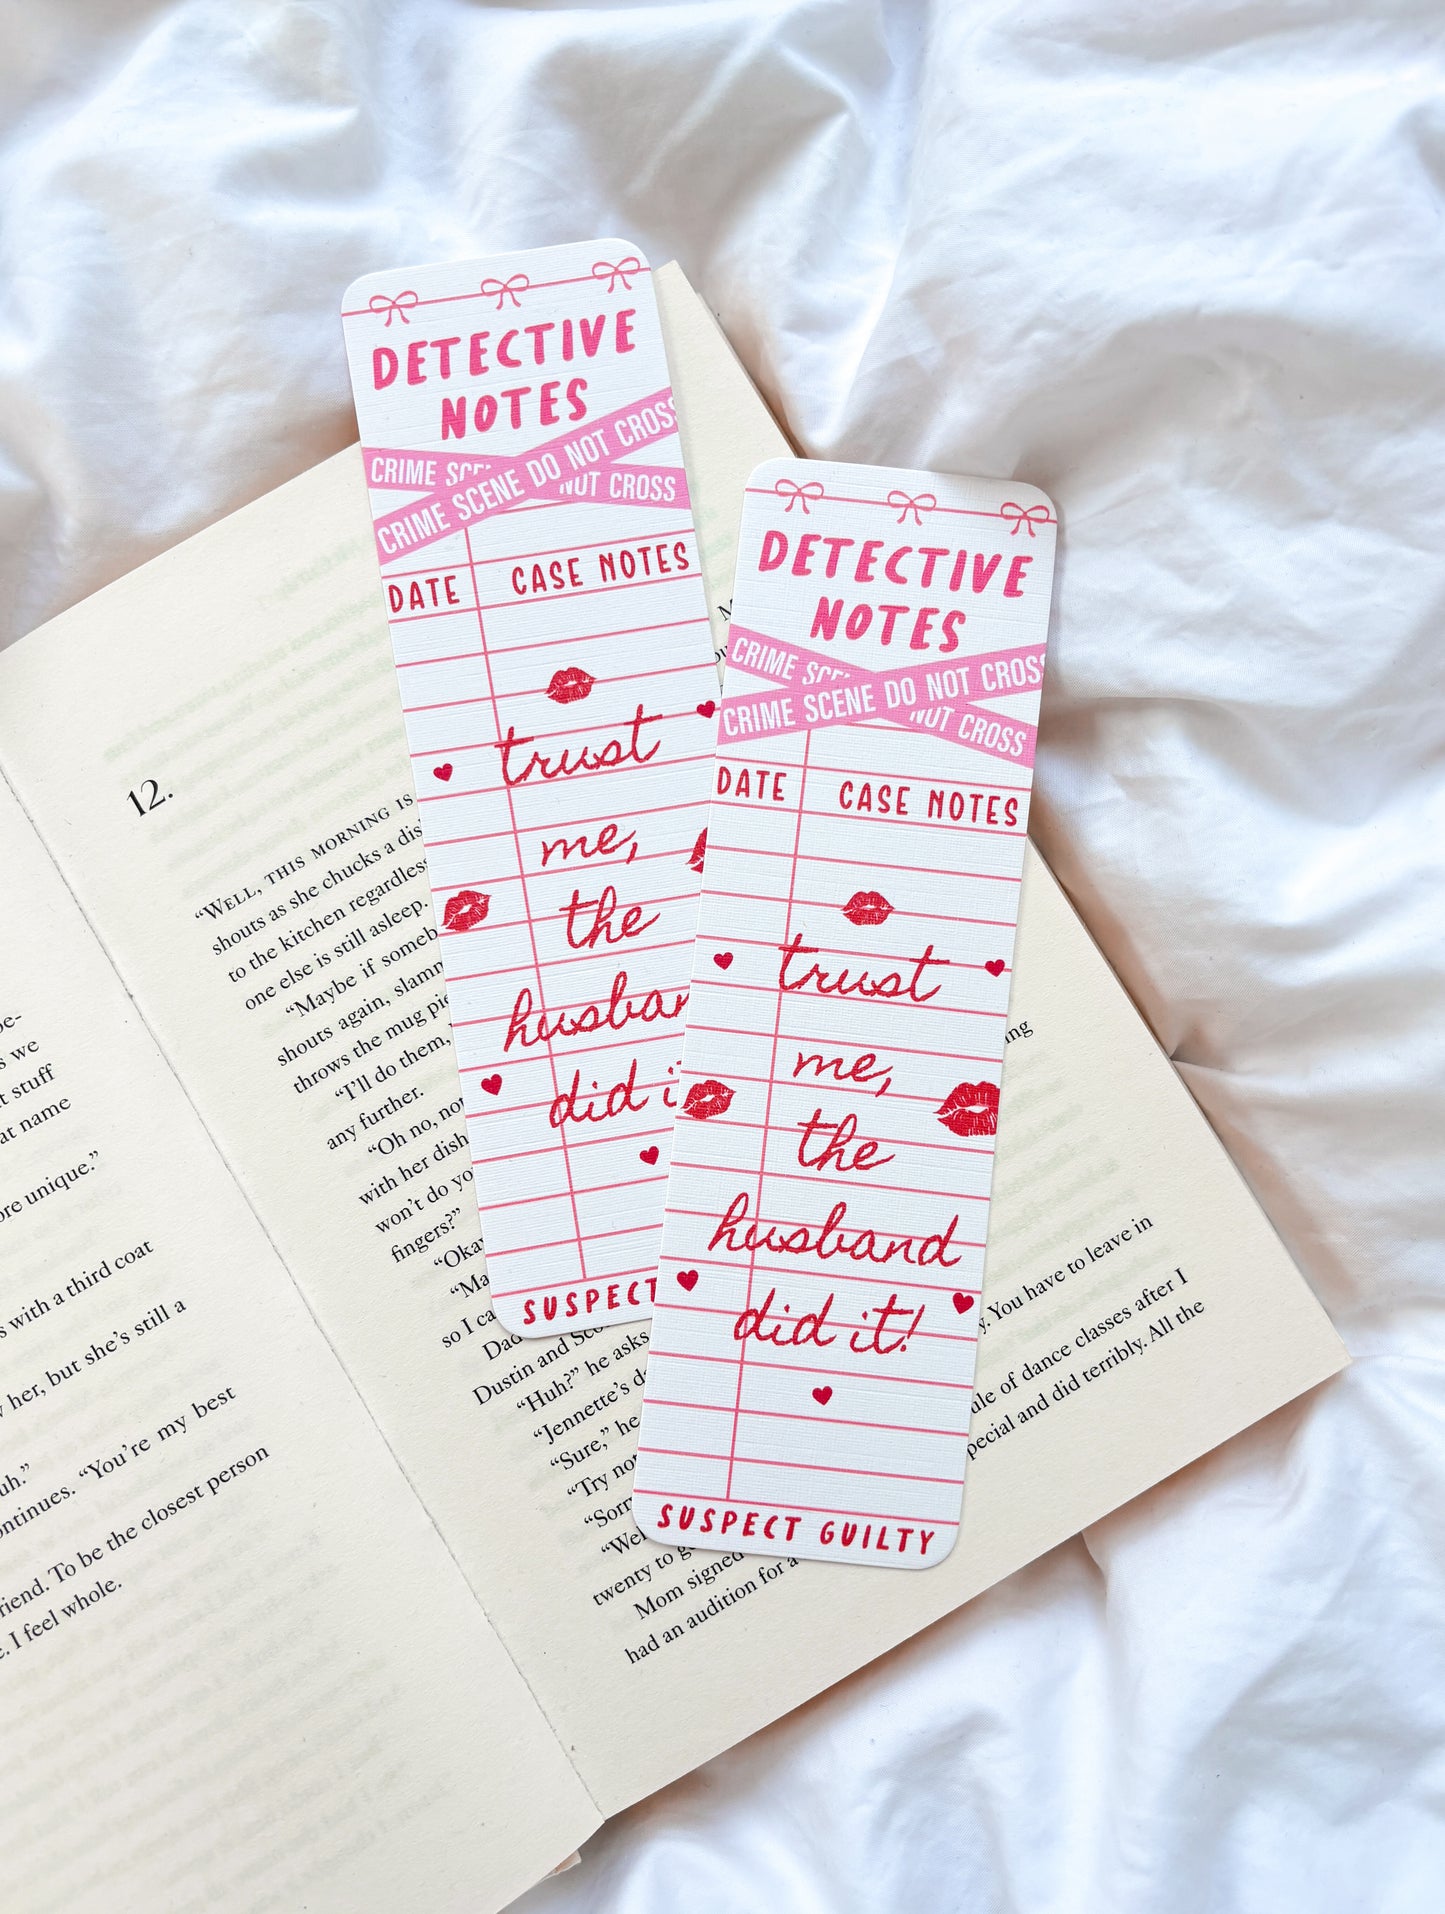 DETECTIVE
NOTES
CRIME SCENE DO NOT CROSS
CRIME SCE
NOT CROSS
DATE
CASE NOTES
trust
me,
the
husban
did it
SUSPECT
DETECTIVE
NOTES
CRIME SCE
CRIME SCENE DO NOT CROSS
NOT CROSS
DATE
CASE NOTES
trust
me,
the
husband
did it!
SUSPECT GUILTY
be-
s we
t stuff
at name
ore unique.”
s with a third coat
her, but she’s still a
uh.”
ontinues. “You’re my best
riend. To be the closest person
I feel whole.
12.
“WELL, THIS MORNING IS
shouts as she chucks a dis
to the kitchen regardless
one else is still asleep.
“Maybe if someb
shouts again, slamm
throws the mug pie
“I’ll do them,
any further.
“Oh no, no
with her dish
won’t do yo
fingers?”
“Okay
“Ma
so I ca
Dad
Dustin and Sco
“Huh?” he asks
“Jennette’s d
“Sure,” he
“Try not
“Sorr
“Wel
twenty to g
Mom signed
had an audition for a
ing
y. You have to leave in
ule of dance classes after I
pecial and did terribly. All the